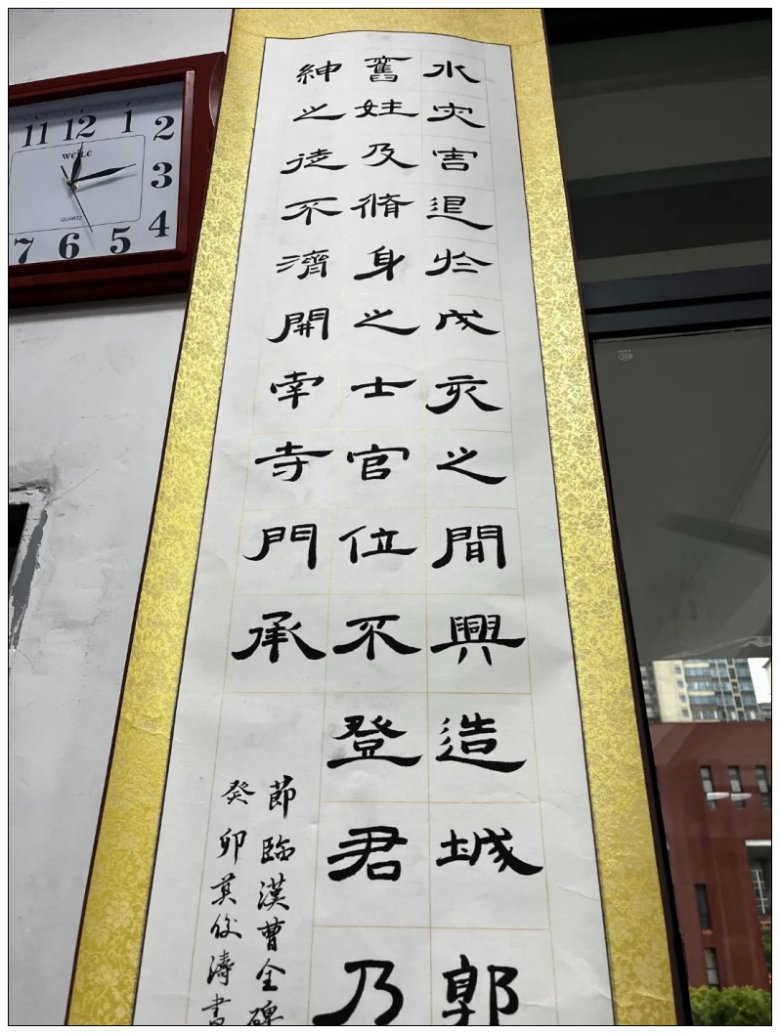 水灾害退於戌亥之間興造城郭
舊姓及脩身之士官位不登君乃
紳之徒不濟開南寺門承
節臨漢曹全碑
癸卯莫俊濤書
11 12 1 2 3 4 5 6 7
WEILE
QUARTZ